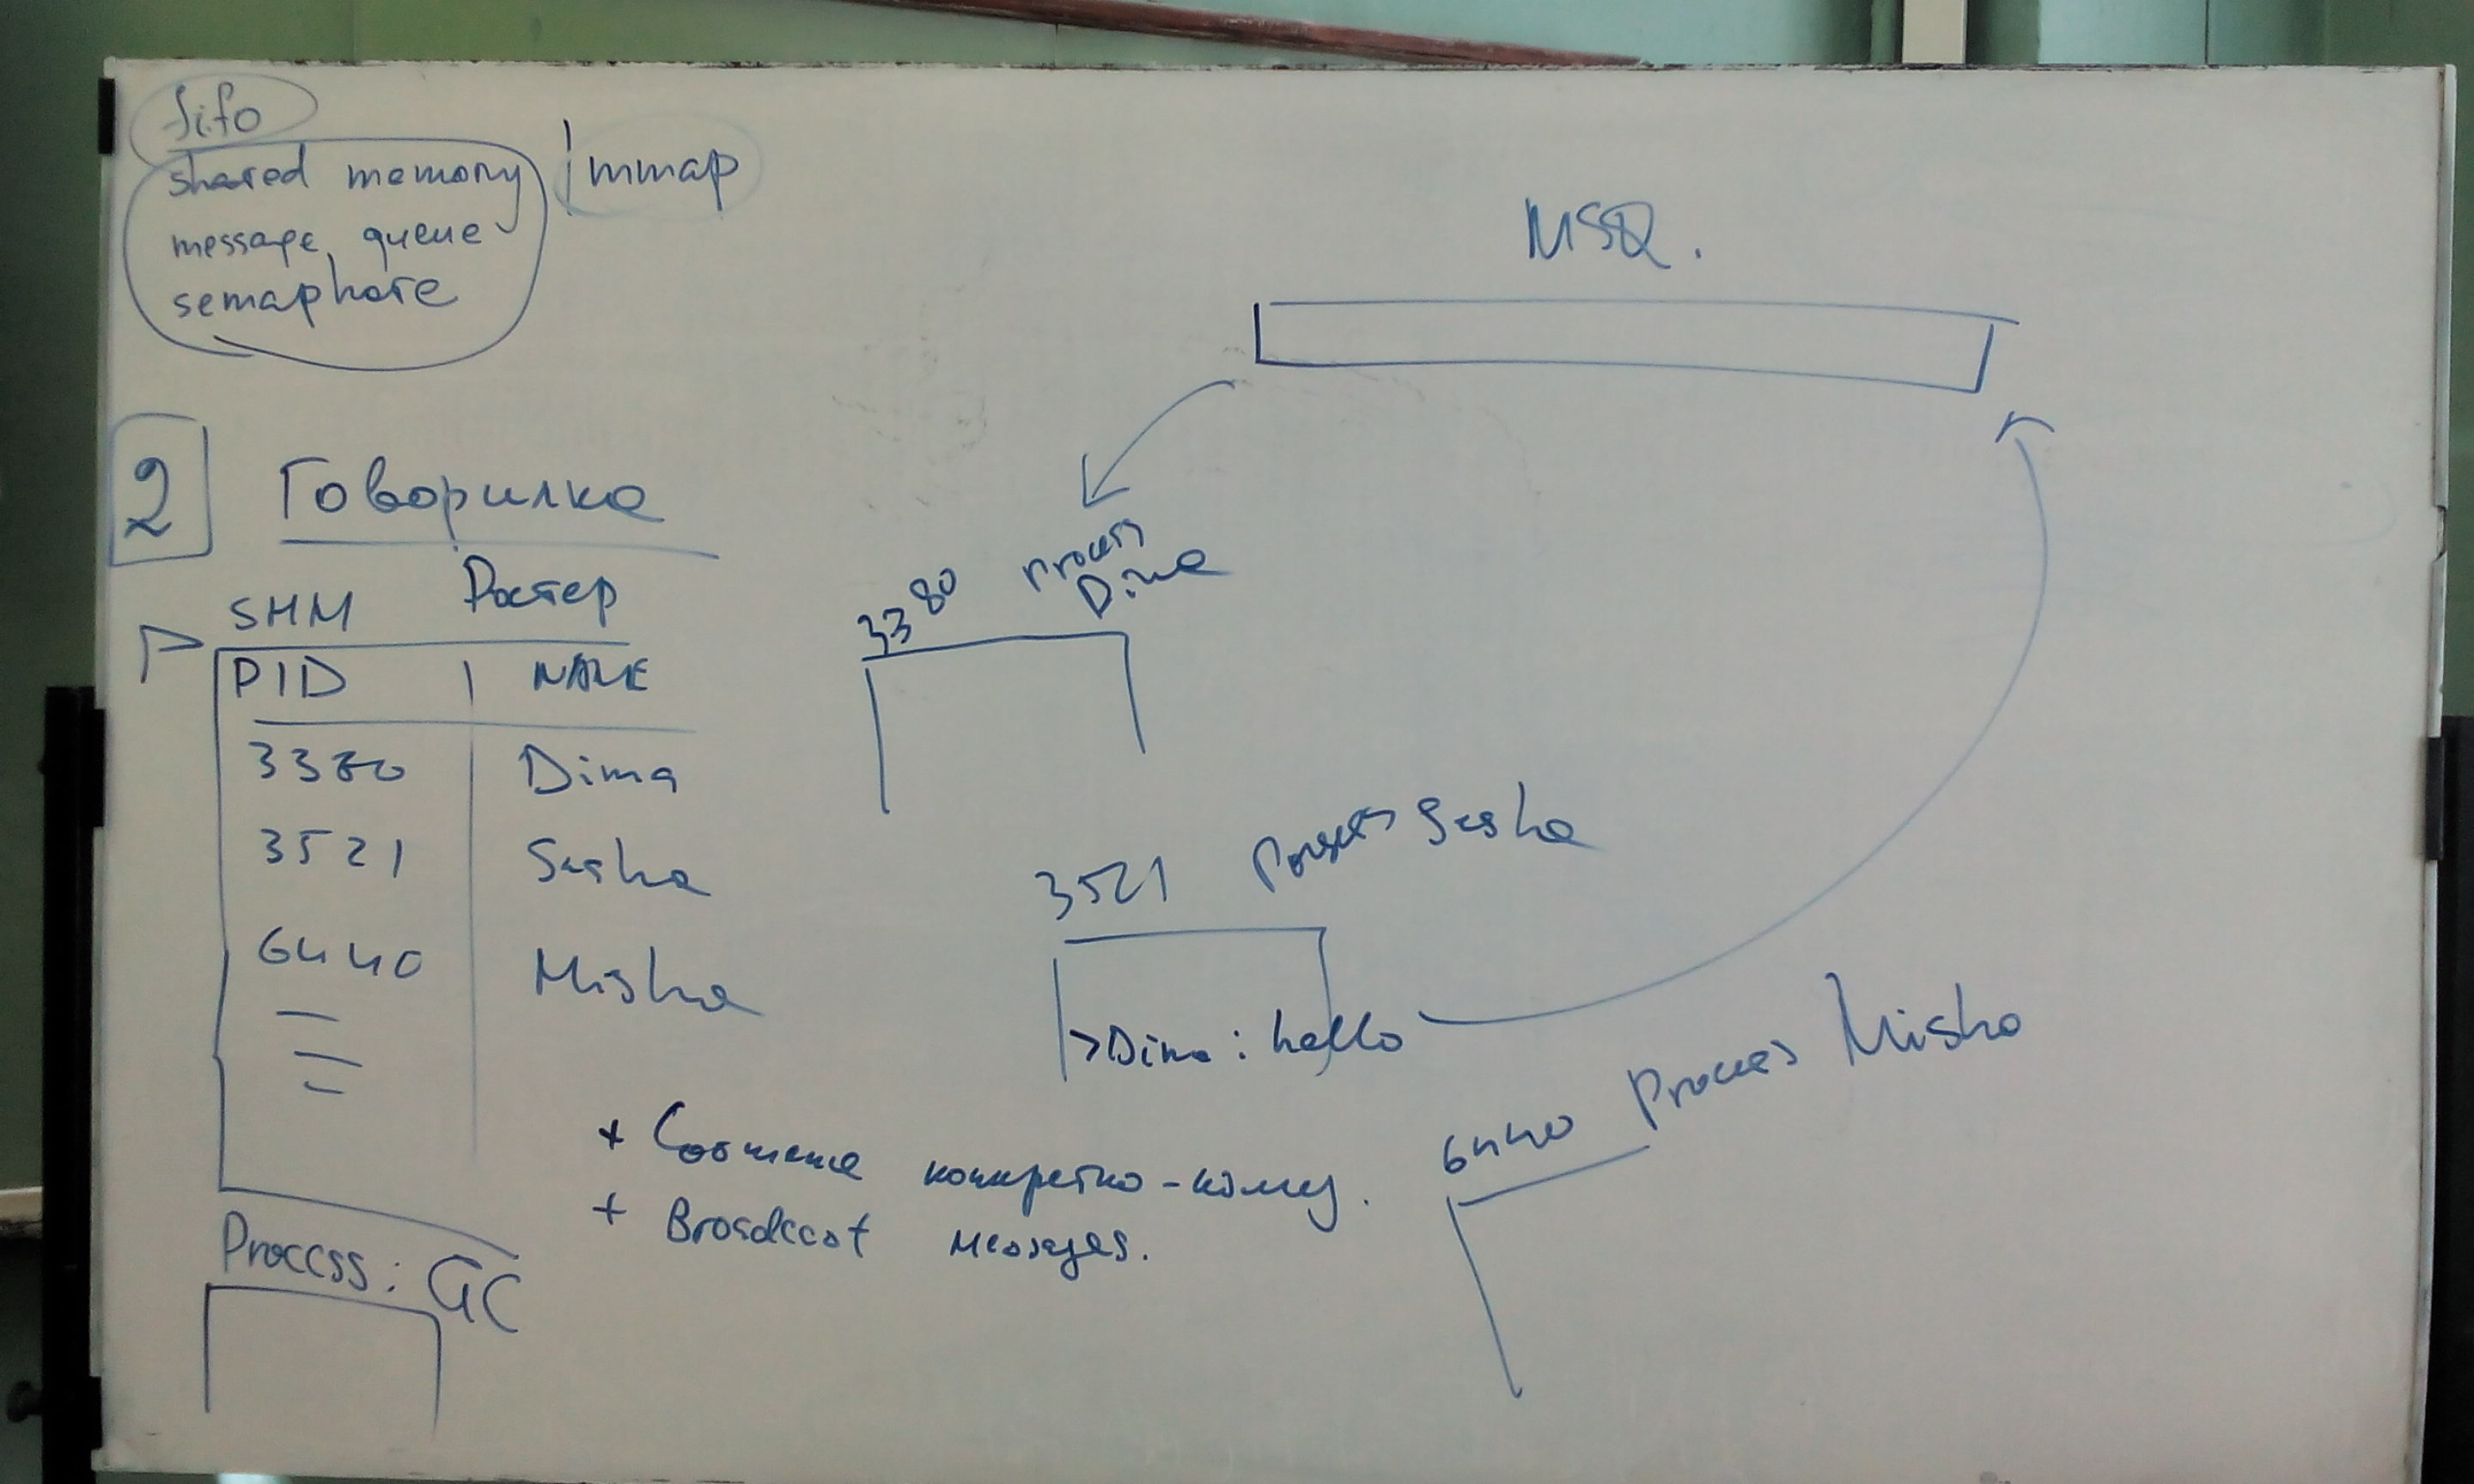 fifo
shared memory | mmap
message queue
semaphore
MSQ.
2 Говорилка
SHM Ростер
PID | NAME
3380 Dima
3521 Sasha
6440 Misha
3380 process Dima
3521 Process Sasha
>Dima: hello
6440 Process Misha
+ Сообщение конкретно-кому.
+ Broadcast messages.
Process: GC